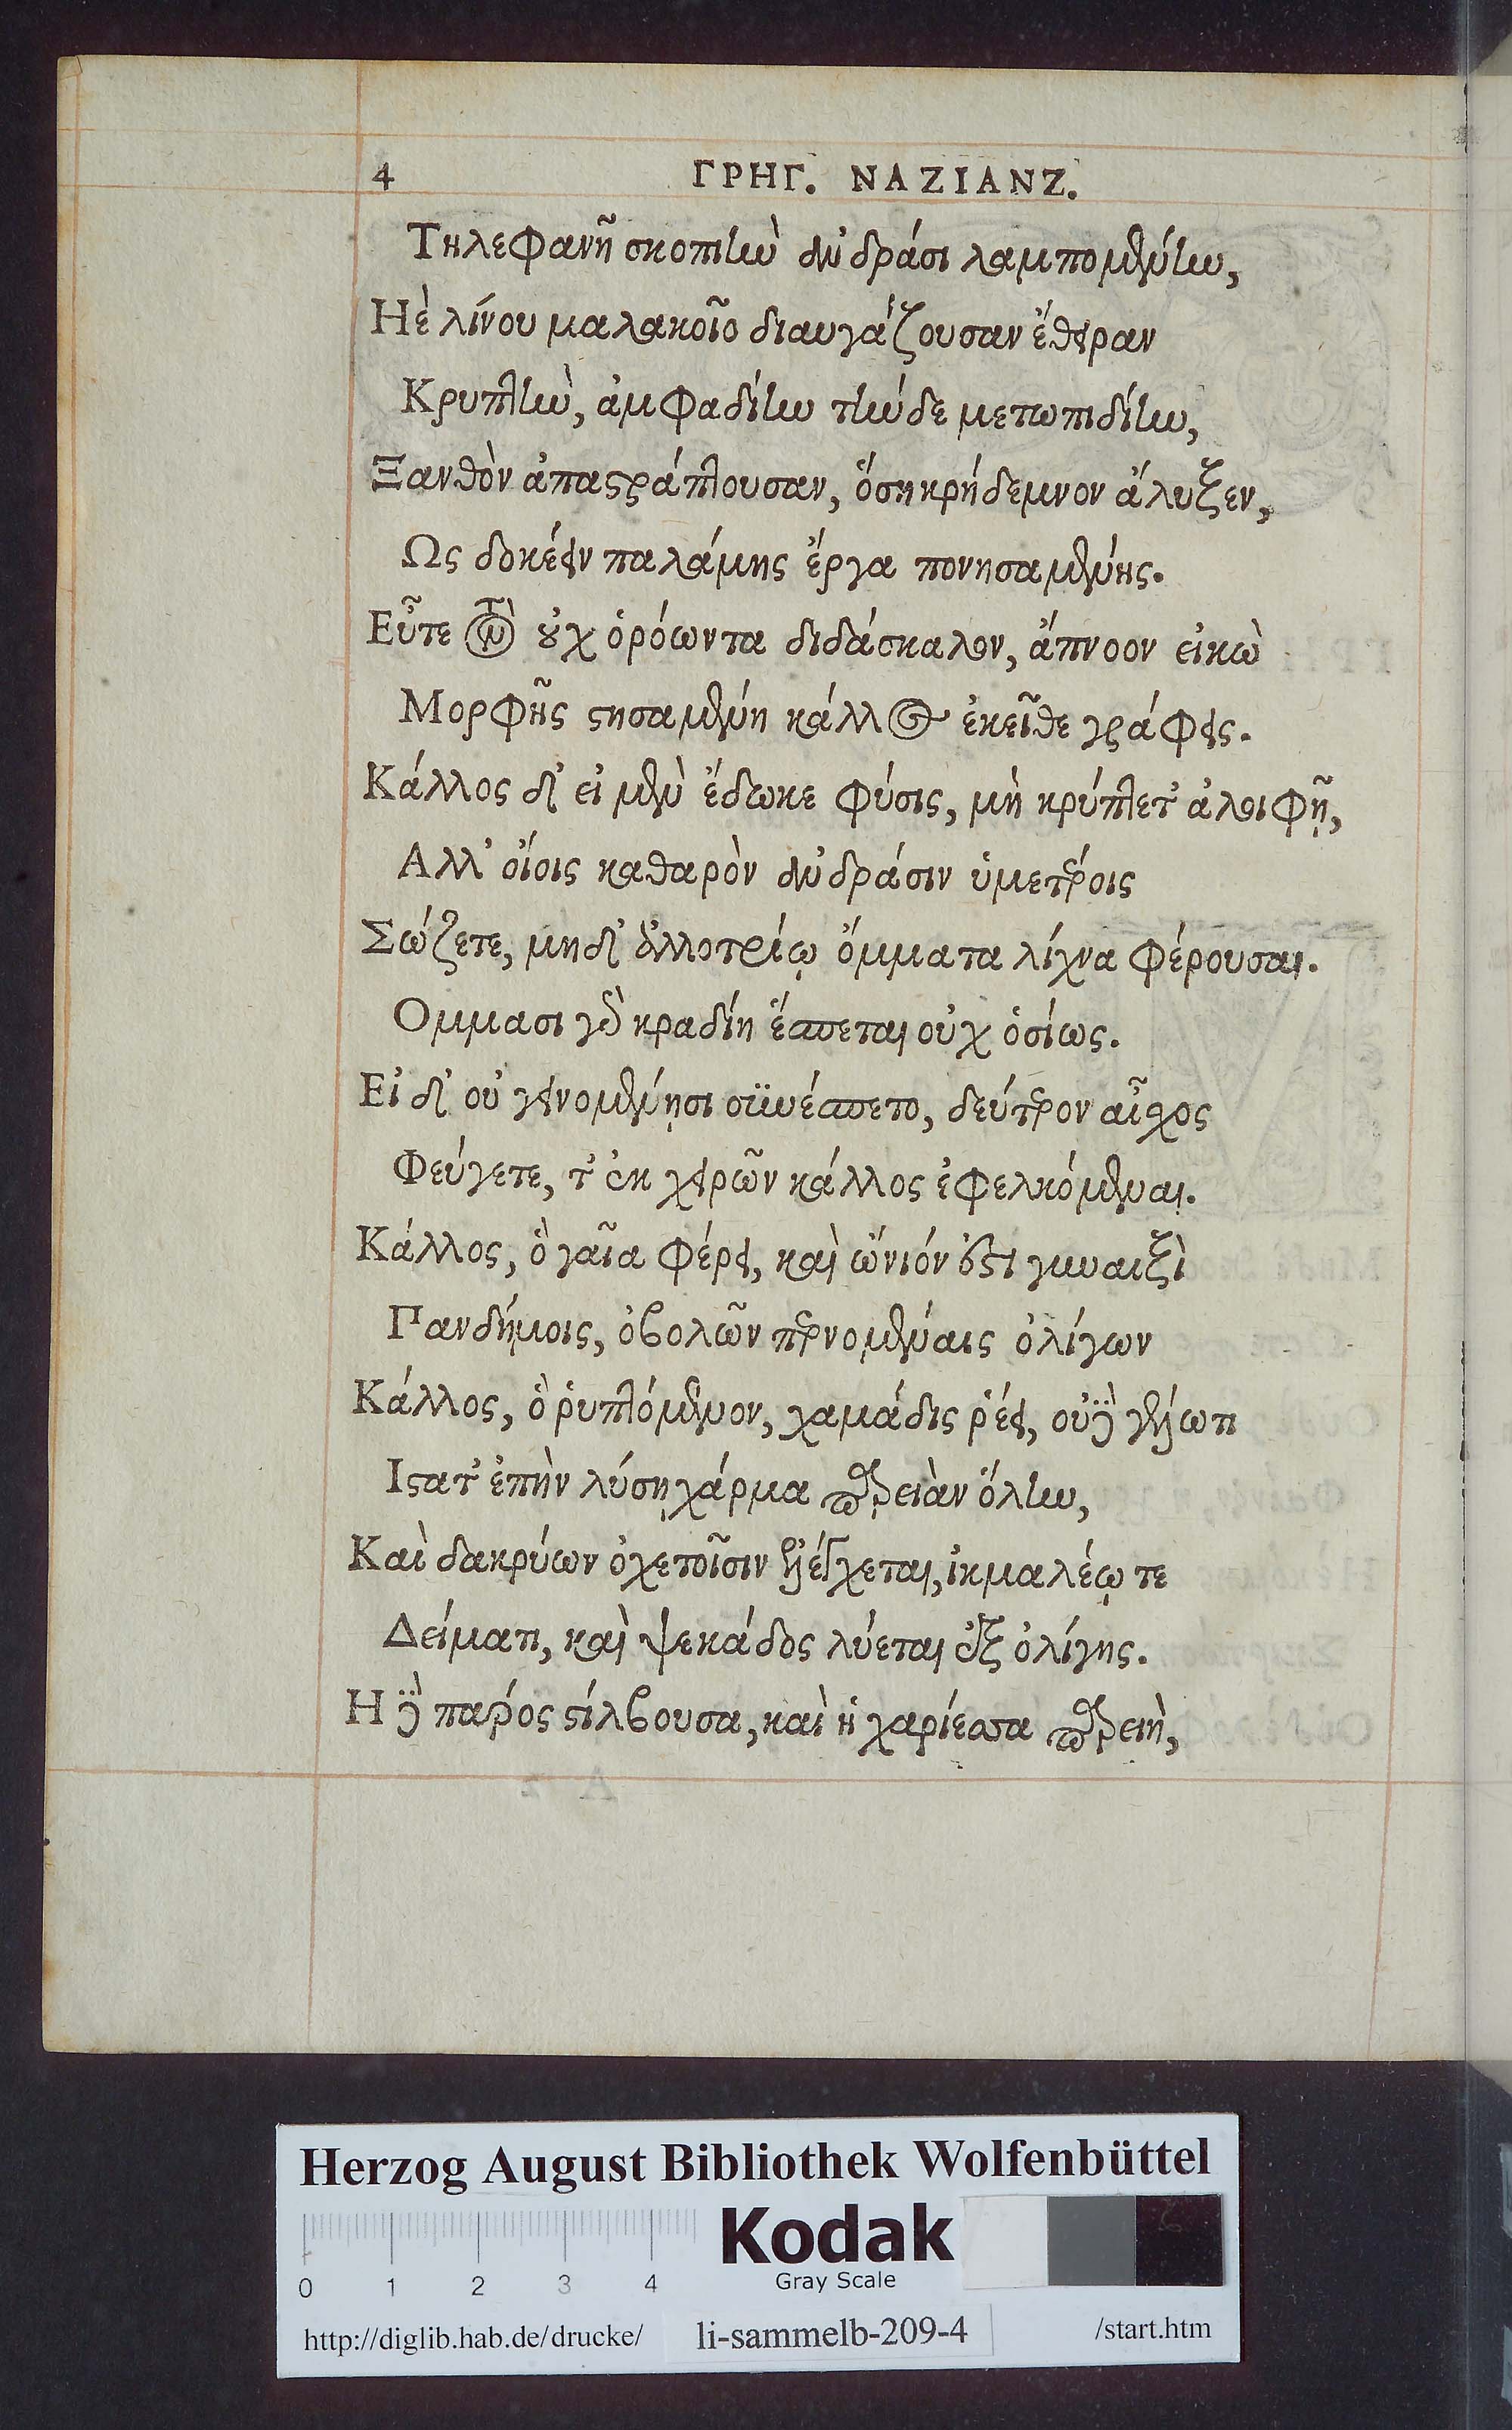 4 ΓΡΗΓ. ΝΑΖΙΑΝΖ.
Τηλεφανῆ σκοπιὴν ἀνδράσι λαμπομένην,
Ηὲ λίνου μαλακοῖο διαυγάζουσαν ἔθειραν
Κρυπτὴν, ἀμφαδίην τήνδε μετωπιδίην,
Ξανθὸν ἀπαστράπτουσαν, ὅση κρήδεμνον ἄλυξεν,
Ως δοκέειν παλάμης ἔργα πονησαμένης.
Εὖτε τὸν οὐχ ὁρόωντα διδάσκαλον, ἄπνοον εἰκὼ
Μορφῆς στησαμένη κάλλος ἐκεῖθε γράφεις.
Κάλλος δ᾽ εἰ μὲν ἔδωκε φύσις, μὴ κρύπτετ᾽ ἀλοιφῇ,
Αλλ᾽ οἴοις καθαρὸν ἀνδράσιν ὑμετέροις
Σώζετε, μηδ᾽ ἀλλοτρίῳ ὄμματα λίχνα φέρουσαι.
Ομμασι γὰρ κραδίη ἕσπεται οὐχ ὁσίως.
Εἰ δ᾽ οὐ γεινομένῃσι συνέσπετο, δεύτερον αἶσχος
Φεύγετε, τ᾽ ἐκ χειρῶν κάλλος ἐφελκόμεναι.
Κάλλος, ὃ γαῖα φέρει, καὶ ὤνιόν ἐστι γυναιξὶ
Πανδήμοις, ὀβολῶν περνομέναις ὀλίγων
Κάλλος, ὃ ῥυπτόμενον, χαμάδις ῥέει, οὐδὲ γέλωτι
Ιστατ᾽ ἐπὴν λύσῃ χάρμα παρειὰν ὅλην,
Καὶ δακρύων ὀχετοῖσιν ἐλέγχεται, ἰκμαλέῳ τε
Δείματι, καὶ ψεκάδος λύεται ἐξ ὀλίγης.
Η δὲ πάρος στίλβουσα, καὶ ἡ χαρίεσσα παρειὴ,
Herzog August Bibliothek Wolfenbüttel
Kodak
Gray Scale
0 1 2 3 4
http://diglib.hab.de/drucke/ li-sammelb-209-4 /start.htm